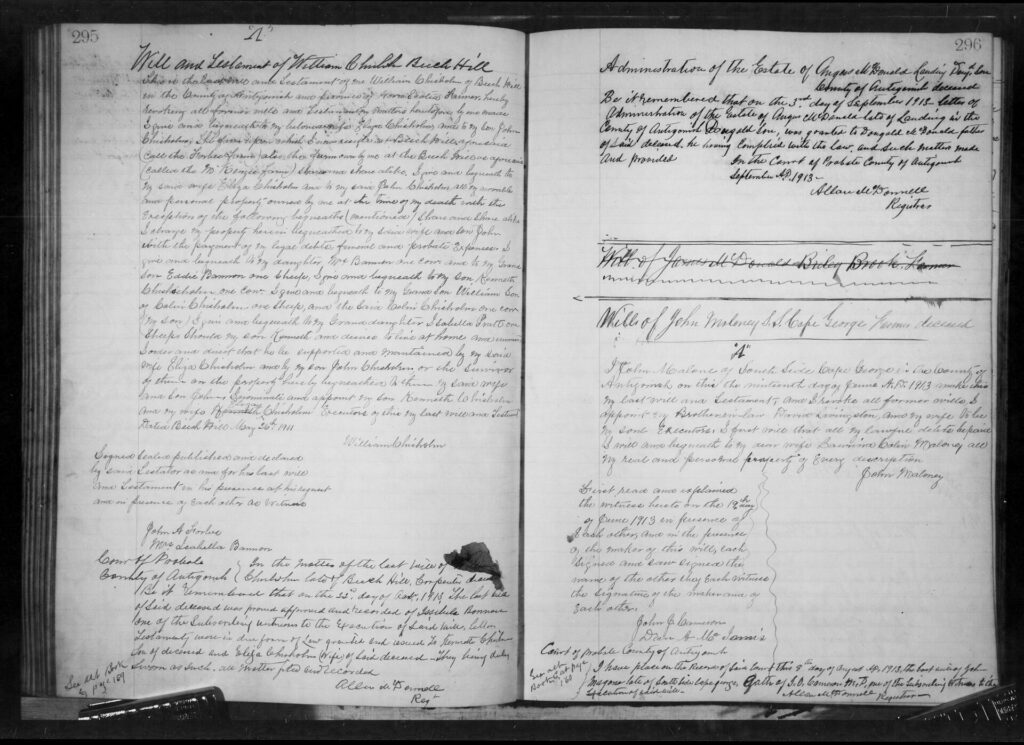 295
"A"
Will and Testament of William Chisholm Beech Hill
This is the last will and Testament of me William Chisholm of Beech Hill
in the County of Antigonish and province of Nova Scotia Farmer, hereby
revoking all former wills and Testamentary matters heretofore by me made
I give and bequeath to my beloved wife Eliza Chisholm, and to my son John
Chisholm, The farm upon which I now reside at Beech Hill, aforesaid
call the Forbes Farm also the Farm own by me at the Beech Hill aforesaid
(called the McKenzie Farm) share and share alike. I give and bequeath to
my said wife Eliza Chisholm and to my said John Chisholm all my movable
and personal property owned by me at the time of my death with the
Exception of the following bequeaths (mentioned) share and share alike
I charge my property herein bequeathed to my said wife and son John
with the payment of my legal debts, funeral and probate Expenses. I
give and bequeath to my daughter, Mrs Bannon one cow and to my Grand
Son Eddie Bannon one Sheep, I give and bequeath to my son Kenneth
Chisholm one cow. I give and bequeath to my Grand Son William Son
of Colin Chisholm one sheep, and the said Colin Chisholm one cow
my son I give and bequeath to my Grand daughter Isabella Pratt one
Sheep Should my son Kenneth and desire to live at home and
I order and direct that he be supported and maintained by my said
wife Eliza Chisholm and by my son John Chisholm or the Survivor
of them on the property hereby bequeathed to them my said wife
and son John. I nominate and appoint my son Kenneth Chisholm
and my wife Chisholm Executors of this my last will and Testament
Dated Beech Hill May 26th 1911
William Chisholm
Signed Sealed published and declared
by said Testator as and for his last will
and Testament in his presence at his request
and in presence of Each other as Witness
John A Forbes
Mrs Isabella Bannon
Court of Probate
County of Antigonish
In the matter of the last will of
Chisholm late of Beech Hill, Carpenter deceased
Be it remembered that on the 22nd day of Oct. 1913 The last will
of said deceased was proved approved and recorded of Isabella Bannon
One of the Subscribing witnesses to the Execution of said will, letters
Testamentary were in due form of Law granted and issued to Kenneth Chisholm
Son of deceased and Eliza Chisholm (Wife) of said deceased They being duly
sworn as such, all matter filed and recorded
Allan McDonnell
Regt
See Ab. Book
page 159
296
Administration of the Estate of Angus McDonald Landing
County of Antigonish deceased
Be it remembered that on the 3rd day of September 1913 letter of
Administration of the Estate of Angus McDonald late of Landing in the
County of Antigonish Dougald Son, was granted to Dougald McDonald father
of said deceased. he having complied with the Law, and such matters made
And provided In the Court of Probate County of Antigonish
September AD. 1913-
Allan McDonnell
Registrar
Will of James McDonald Briley Brook Farmer
Wills of John Maloney S.S. Cape George Farmer deceased
"A"
I John Malone of South Side Cape George in the County of
Antigonish on this the nineteenth day of June A.D. 1913 make this
my last will and Testament, and I revoke all former wills, I
appoint my Brother in law Livingston, and my wife to be
my sole Executors. I first will that all my lawful debts be paid
I will and bequeath to my dear wife Maloney all
my real and personal property of Every description
John Maloney
First read and explained
the witness hereto on the 19th day
of June 1913 in presence of
Each other, and in the presence
of the maker of this will, each
signed and saw signed the
name of the other they Each witness
the signature of the maker and of
Each other.
John J. Cameron
Dan A McInnis
Court of Probate County of Antigonish
See Ab.
Book page
160
I have place on the Record of said Court this 8th day of August AD, 1913, the last will of John
Maloney late of South Side Cape George, Oath of J.J. Cameron M.D., one of the Subscribing witness to the
Execution of said will. Allan McDonnell
Registrar